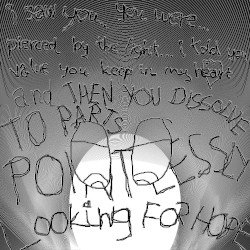 I saw you, you were...
pierced by the light... I told you
you keep in my heart
and THEN YOU DISSOLVE
TO PARTS
POINTLESSLY
LOOKING FOR HOPE